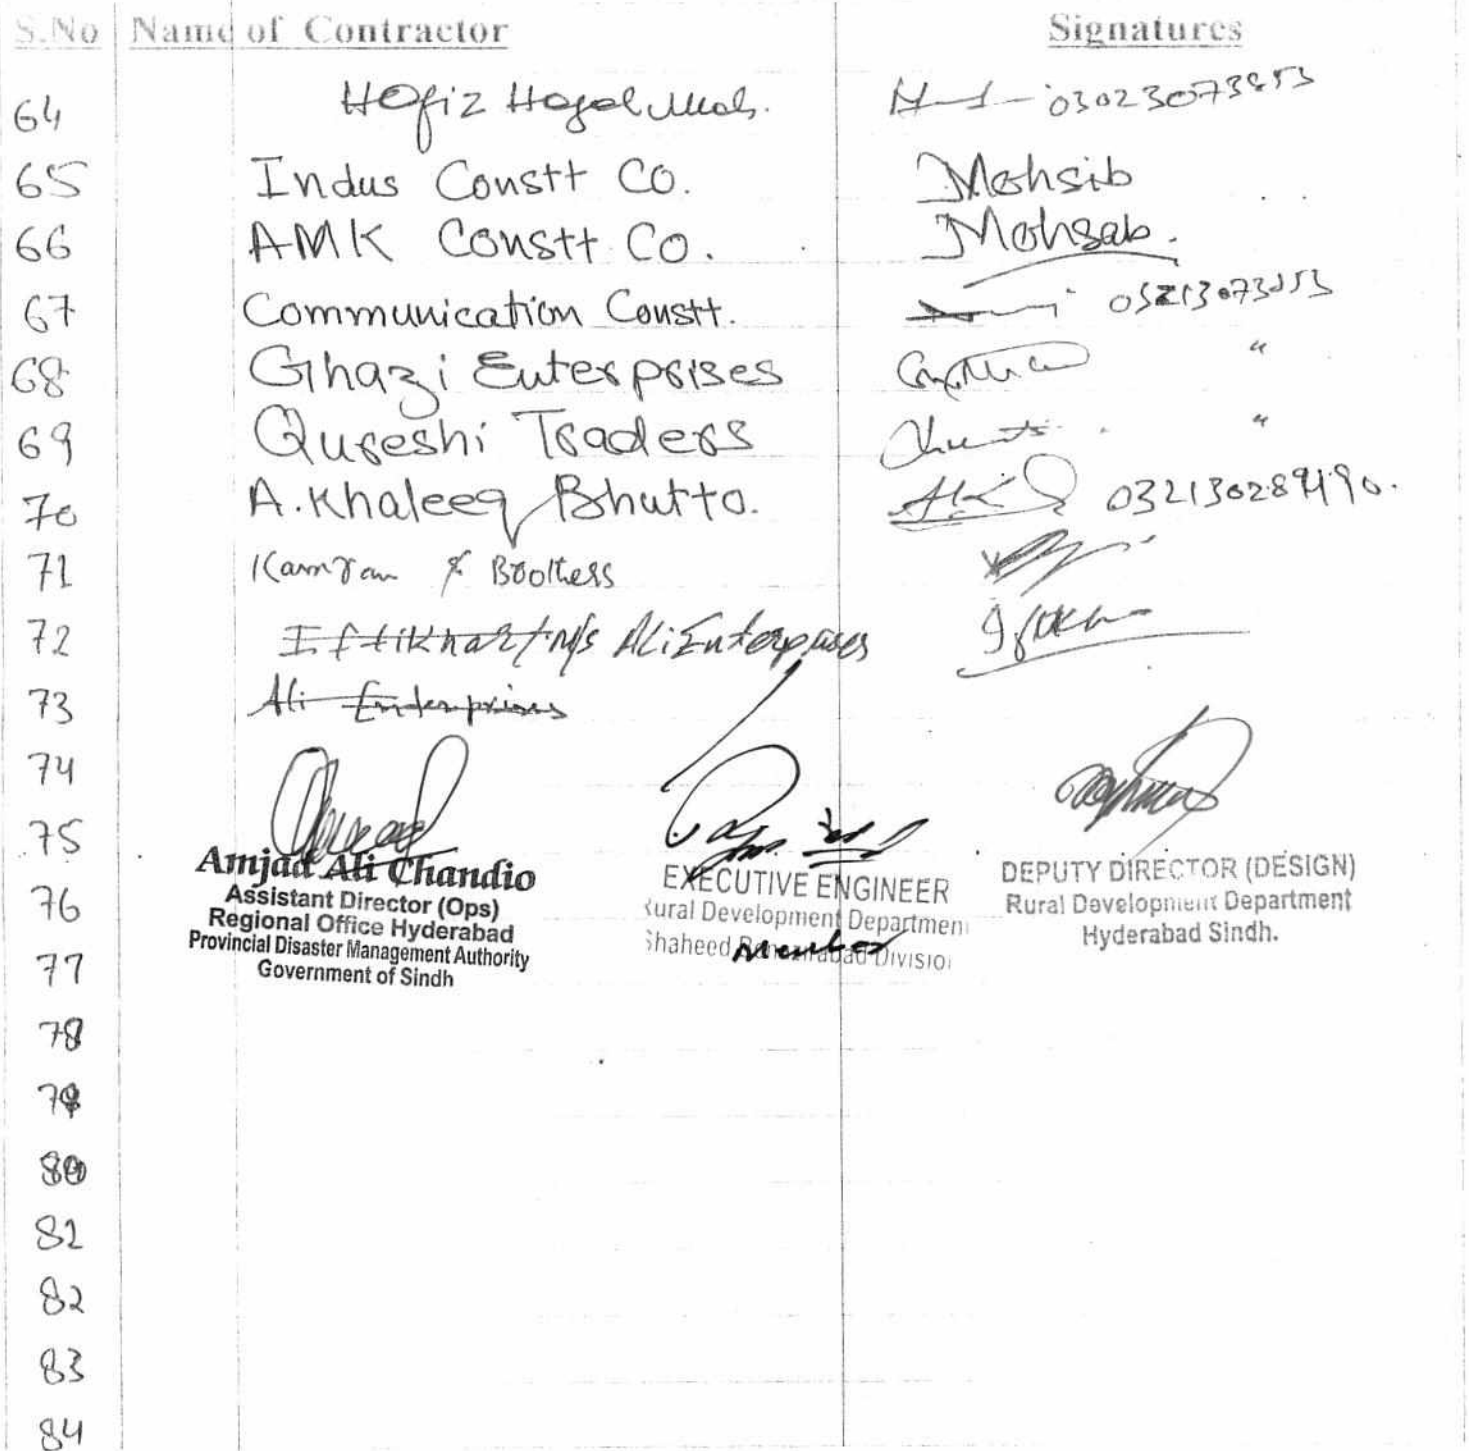 S.No Name of Contractor Signatures
64 Hafiz 03023073853
65 Indus Constt Co. Mohsib
66 AMK Constt Co. Mohsab.
67 Communication Constt.
68 Ghazi Enterprises "
69 Qureshi Traders "
70 A. Khaleeq Bhutto.
71 Kamran & Brothers
72 Iftikhar / M/s Ali Enterprises
73 Ali Enterprises
74
75
Amjad Ali Chandio
Assistant Director (Ops)
Regional Office Hyderabad
Provincial Disaster Management Authority
Government of Sindh
EXECUTIVE ENGINEER
Rural Development Departmen
Shaheed Division
Member
DEPUTY DIRECTOR (DESIGN)
Rural Development Department
Hyderabad Sindh.
76
77
78
79
80
81
82
83
84